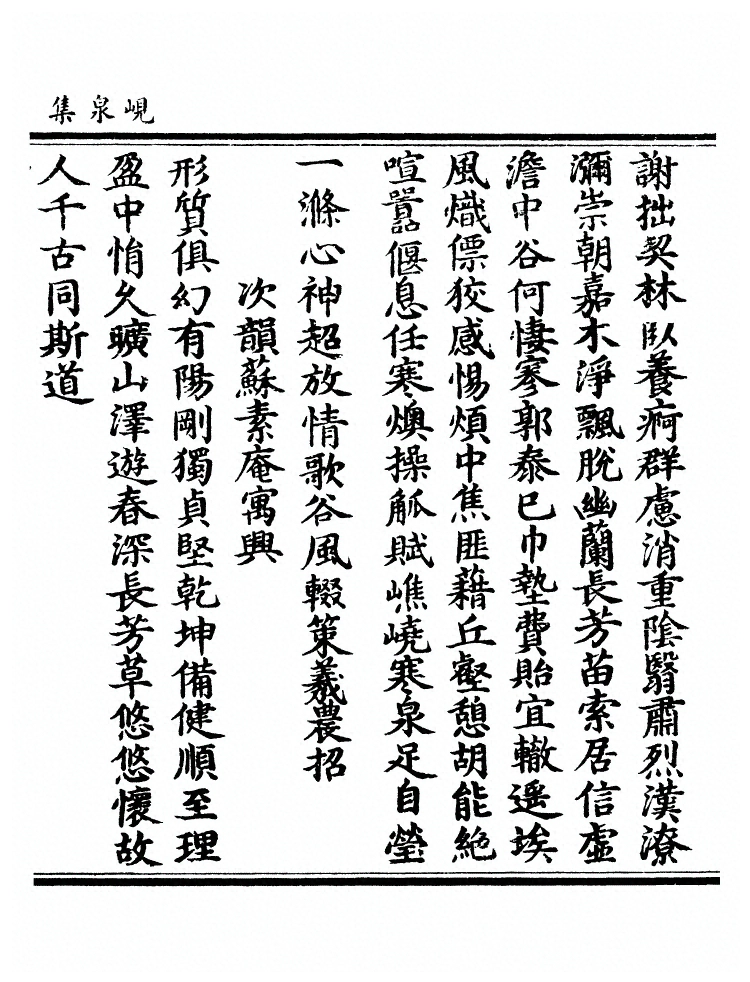 峴泉集
謝拙契林臥養痾群慮消重陰翳肅烈漢潦
瀰崇朝嘉木淨飄脫幽蘭長芳苗索居信虛
澹中谷何悽寥郭泰巳巾墊費貽宜轍遥埃
風熾僄狡感惕煩中焦匪藉丘壑憩胡能絶
喧囂偃息任寒燠操觚賦嶕嶢寒泉足自瑩
一滌心神超放情歌谷風輟策羲農招
次韻蘇素庵寓興
形質俱幻有陽剛獨貞堅乾坤備健順至理
盈中悁久曠山澤遊春深長芳草悠悠懷故
人千古同斯道